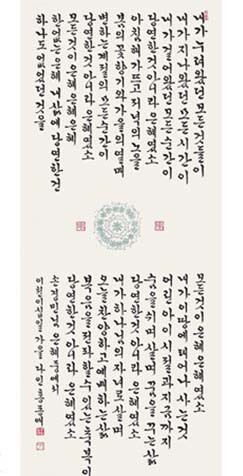 내가 누려왔던 모든 것들이
내가 지나왔던 모든 시간이
내가 걸어왔던 모든 순간이
당연한 것 아니라 은혜였소
아침 해가 뜨고 저녁의 노을
봄의 꽃향기와 가을의 열매
변하는 계절의 모든 순간이
당연한 것 아니라 은혜였소
모든 것이 은혜 은혜 은혜
한없는 은혜 내 삶에 당연한 건
하나도 없었던 것을
모든 것이 은혜 은혜였소
내가 이 땅에 태어나 사는 것
어린 아이 시절과 지금까지
숨을 쉬며 살며 꿈을 꾸는 삶
당연한 것 아니라 은혜였소
내가 하나님의 자녀로 살며
오늘 찬양하고 예배하는 삶
복음을 전할 수 있는 축복이
당연한 것 아니라 은혜였소
손경민님 은혜 중에서
이천이십일년 가을 다인